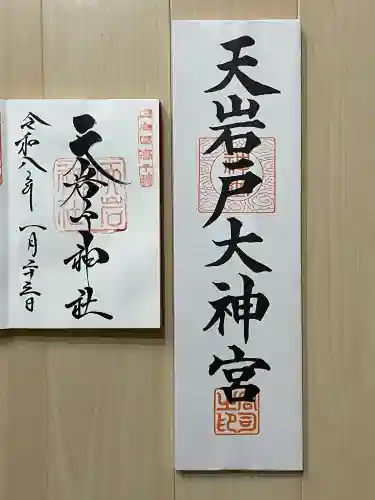 天岩戸大神宮
宮司之印
天岩戸神社
令和八年 一月二十三日